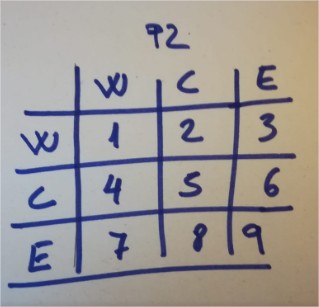 P2
W C E
W 1 2 3
C 4 5 6
E 7 8 9